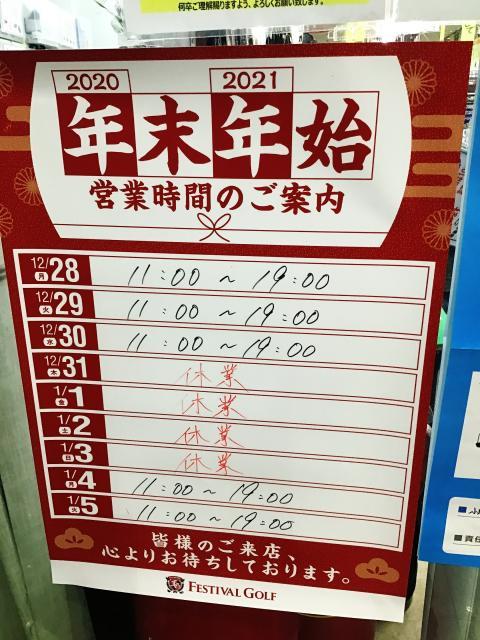 何卒ご理解賜りますよう、よろしくお願い致します。
2020 2021
年末年始
営業時間のご案内
12/28 月 11:00 ~ 19:00
12/29 火 11:00 ~ 19:00
12/30 水 11:00 ~ 19:00
12/31 木 休業
1/1 金 休業
1/2 土 休業
1/3 日 休業
1/4 月 11:00 ~ 19:00
1/5 火 11:00 ~ 19:00
皆様のご来店、
心よりお待ちしております。
FESTIVAL GOLF
責任